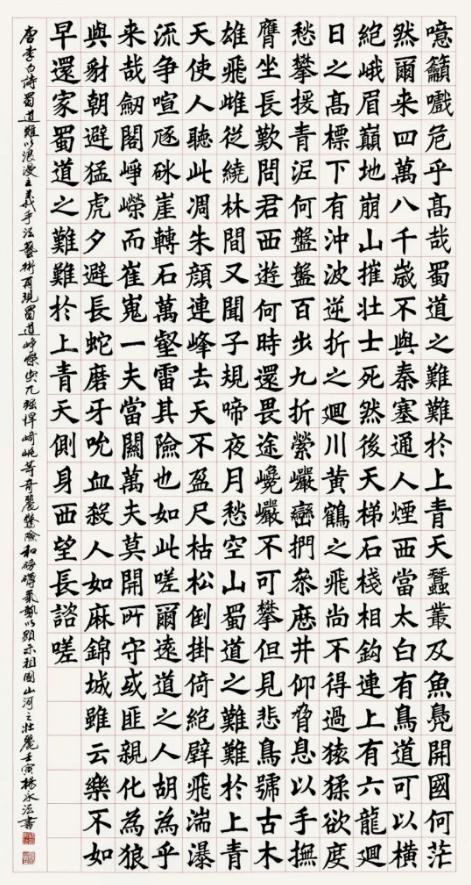 噫籲嚱危乎髙哉蜀道之難難於上青天蠶叢及魚鳧開國何茫
然爾来四萬八千歲不與秦塞通人煙西當太白有鳥道可以橫
絶峨眉巔地崩山摧壯士死然後天梯石棧相鈎連上有六龍迴
日之髙標下有沖波逆折之迴川黃鶴之飛尚不得過猿猱欲度
愁攀援青泥何盤盤百步九折縈巖巒捫參歷井仰脅息以手撫
膺坐長歎問君西遊何時還畏途巉巖不可攀但見悲鳥號古木
雄飛雌從繞林間又聞子規啼夜月愁空山蜀道之難難於上青
天使人聽此凋朱顏連峰去天不盈尺枯松倒掛倚絶壁飛湍瀑
流争喧豗砯崖轉石萬壑雷其險也如此嗟爾遠道之人胡為乎
来哉劒閣崢嶸而崔嵬一夫當關萬夫莫開所守或匪親化為狼
與豺朝避猛虎夕避長蛇磨牙吮血殺人如麻錦城雖云樂不如
早還家蜀道之難難於上青天側身西望長諮嗟
唐李白詩蜀道難以浪漫主義手法藝術再現蜀道崢嶸突兀强悍崎嶇等奇麗驚險和磅礴氣勢以顯示祖國山河之壯麗壬寅楊永法書